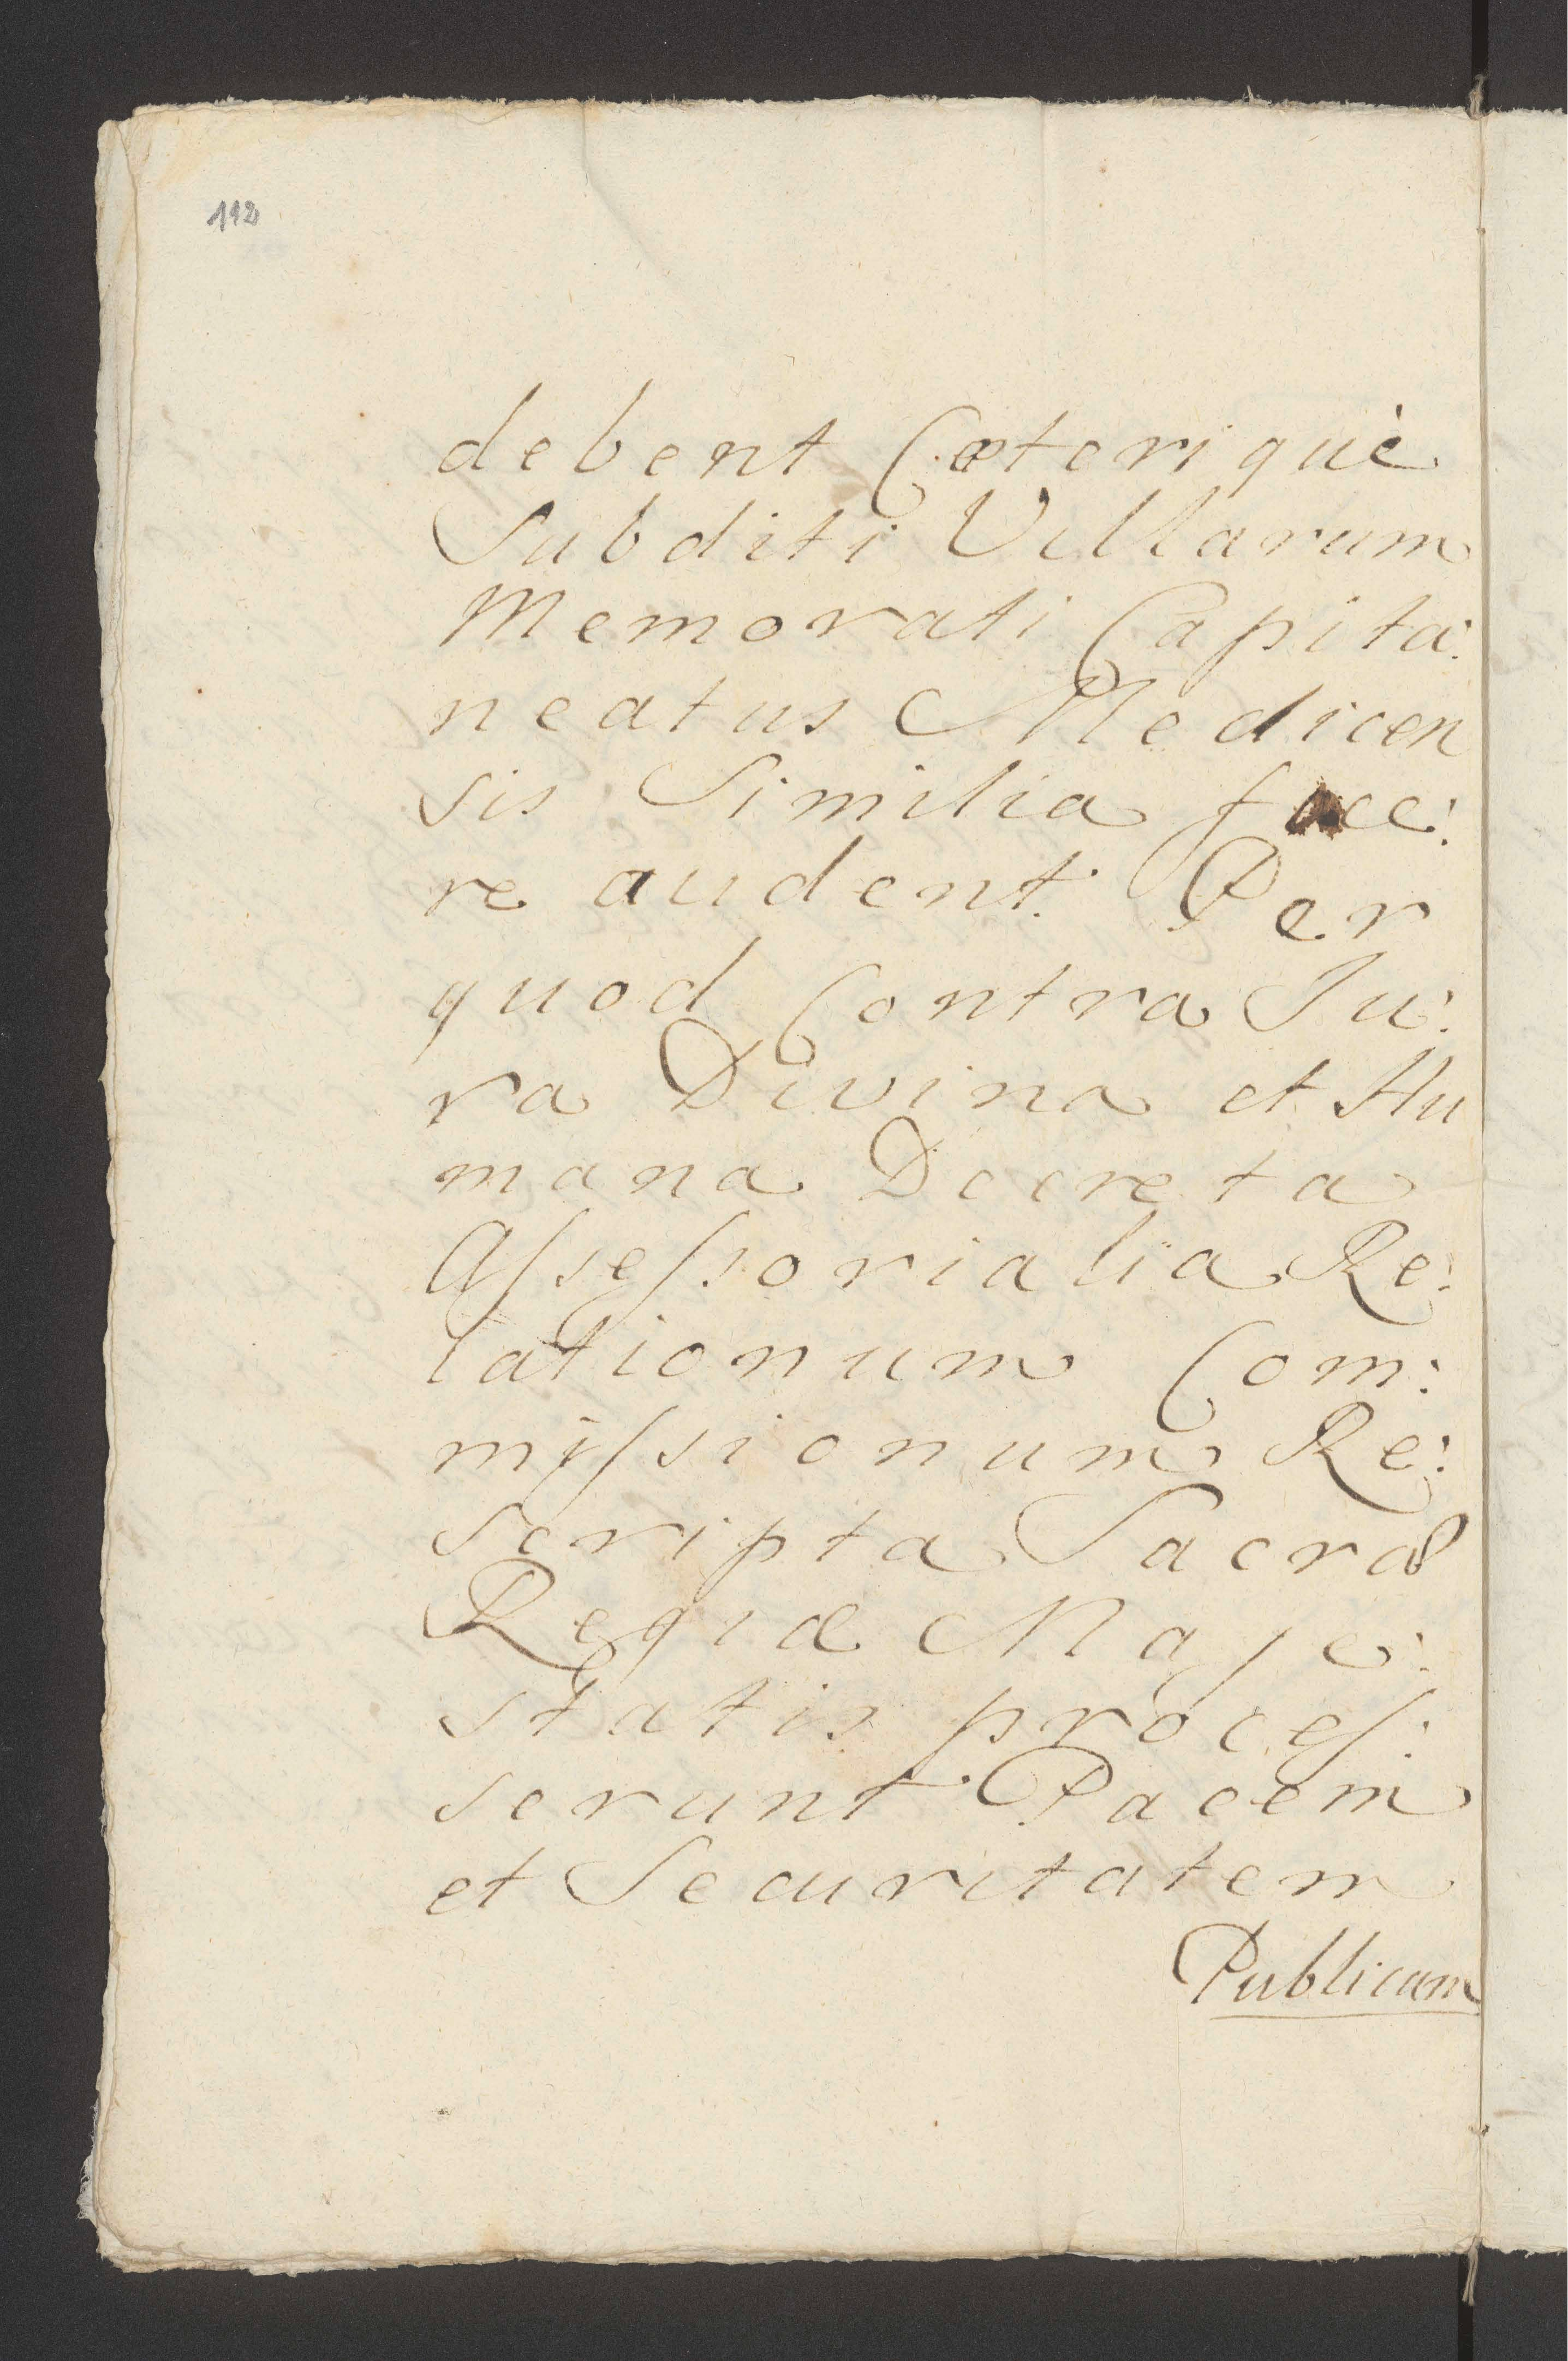 112
debent Cæterique
Subditi Villarum
Memorati Capita:
neatus Medicen
sis Similia face:
re audent. Per
quod Contra Ju:
ra Divina et Hu
mana Decreta
Assessorialia Re:
lationum Com:
missionum Re:
scripta Sacræ
Regiæ Maje:
statis proces:
serunt Pacem
et Securitatem
Publicam